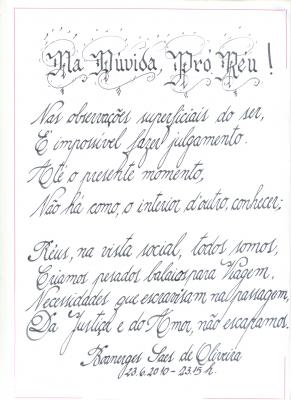 Na Dúvida, Pró Réu!
Nas observações superficiais do ser,
É impossível fazer julgamento.
Até o presente momento,
Não há como, o interior d'outro, conhecer;
Réus, na vista social, todos somos,
Criamos pesados balaios para Viagem,
Necessidades que escravisam na passagem,
Da Justiça e do Amor, não escapamos.
Boanerges Saes de Oliveira
23.6.2010 - 23.15 h.